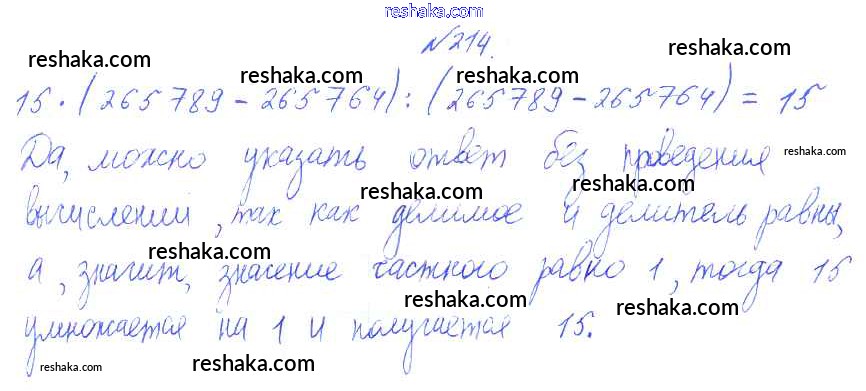 reshaka.com
№214.
15·(265789-265764):(265789-265764)=15
Да, можно указать ответ без проведения
вычислений, так как делимое и делитель равны,
а, значит, значение частного равно 1, тогда 15
умножается на 1 и получается 15.
reshaka.com
reshaka.com
reshaka.com
reshaka.com
reshaka.com
reshaka.com
reshaka.com
reshaka.com
reshaka.com
reshaka.com
reshaka.com
reshaka.com
reshaka.com
reshaka.com